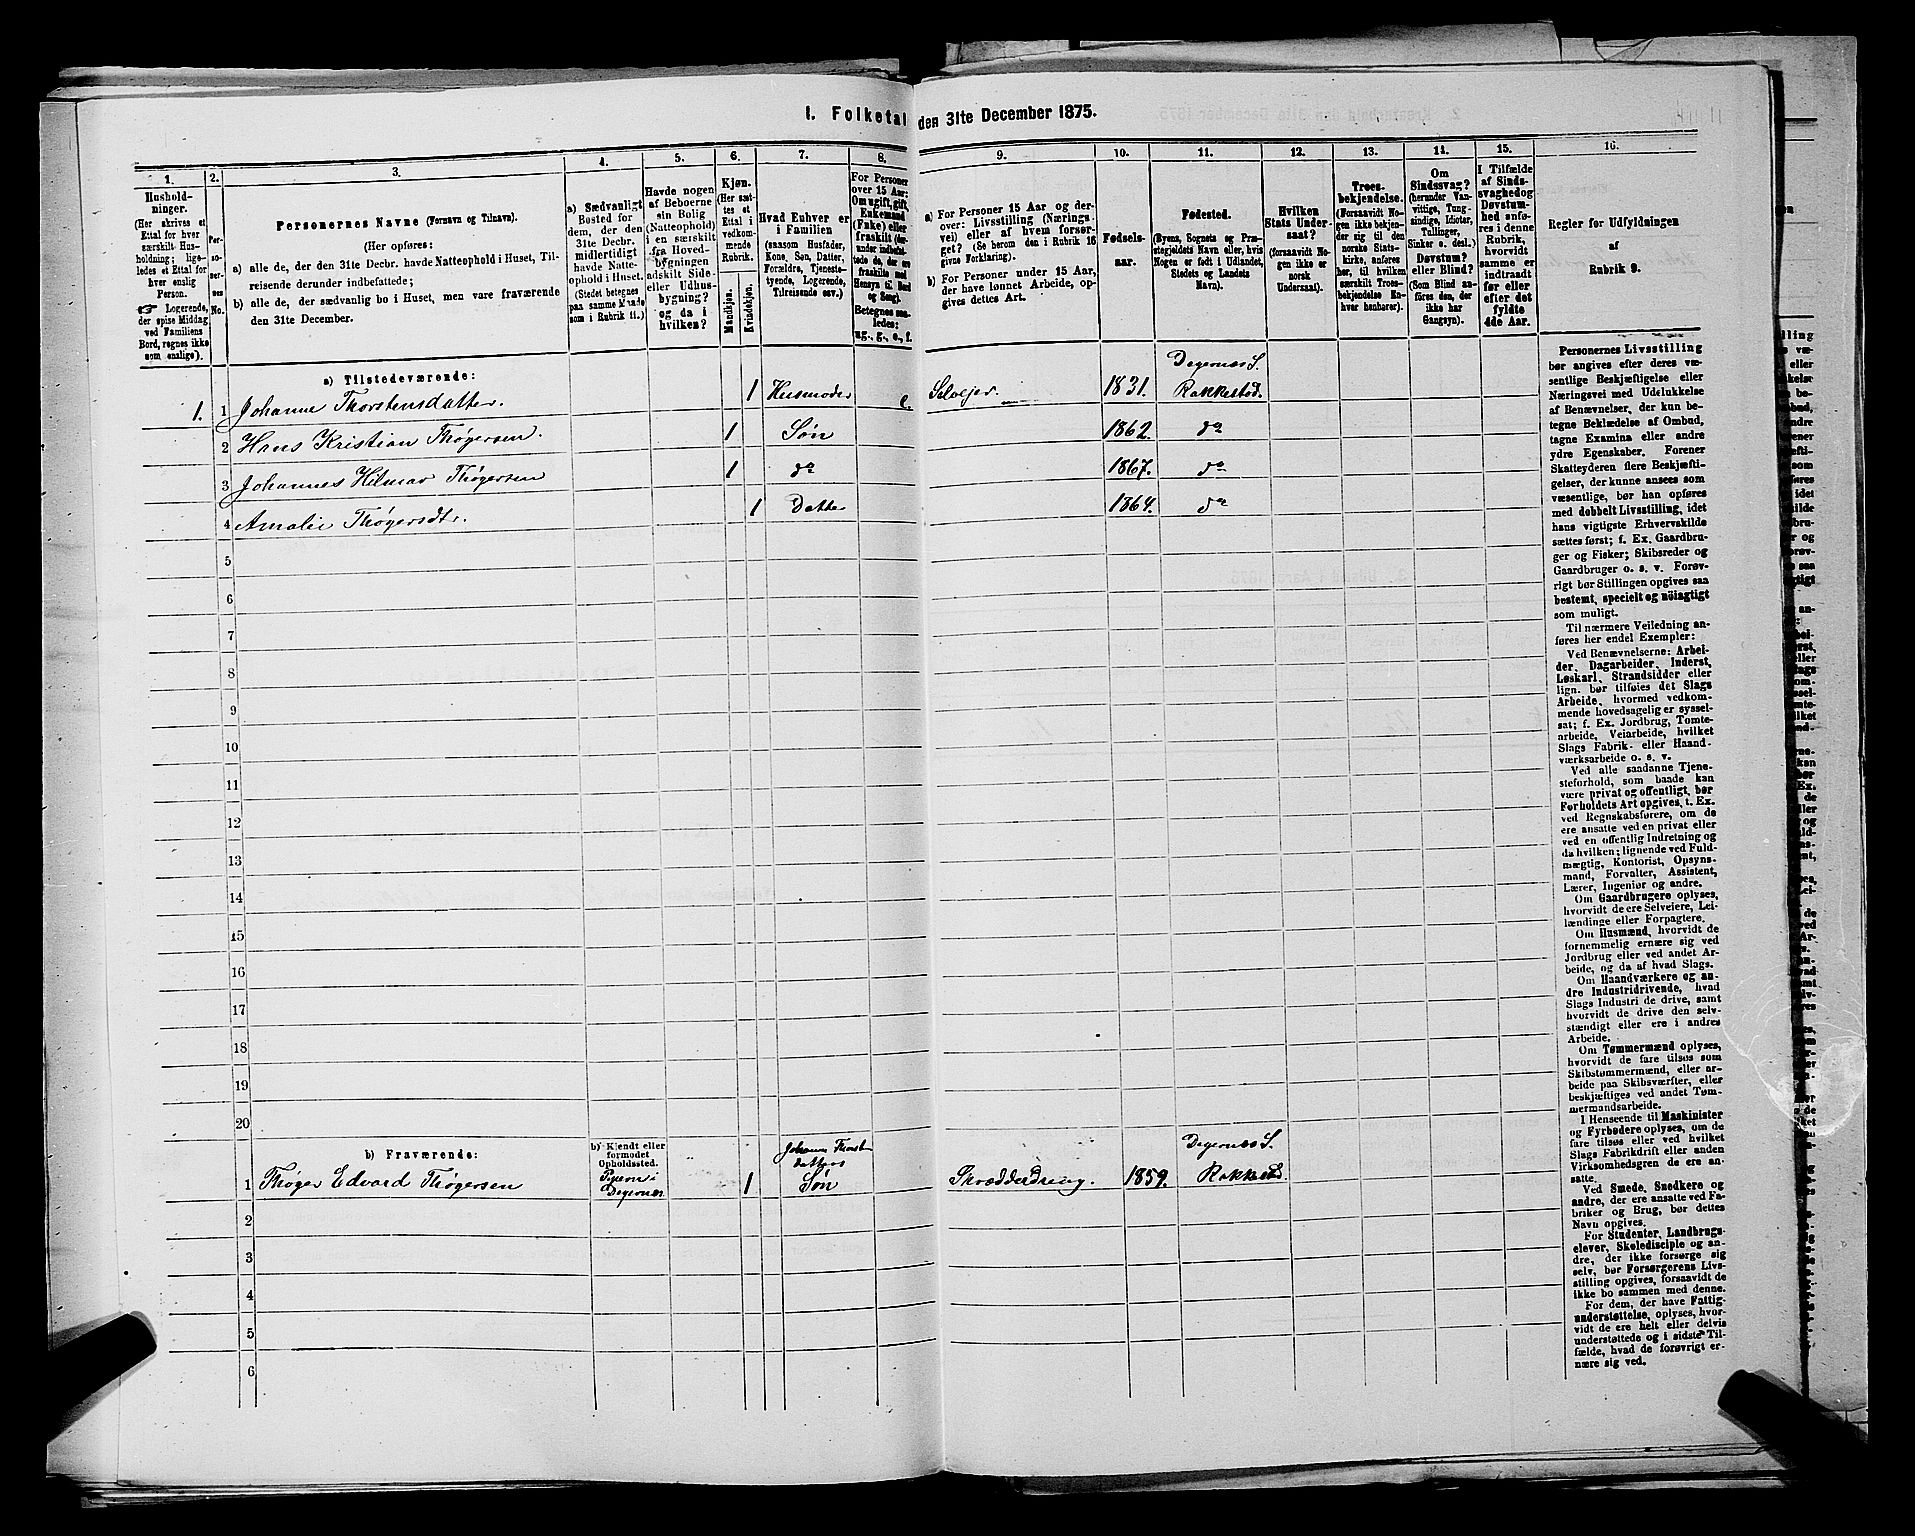 1. Folketal den 31te December 1875.
1. 2. 3. 4. 5. 6. 7. 8. 9. 10. 11. 12. 13. 14. 15. 16.
Hushold-
ninger.
(Her skrives et
Ettal for hver
særskilt Hus-
holdning; lige-
ledes et Ettal for
hver enslig
Person.
☞ Logerende,
der spise Middag
ved Familiens
Bord, regnes ikke
som enslige).
Per-
so-
ner-
nes
No.
Personernes Navne (Fornavn og Tilnavn).
(Her opføres:
a) alle de, der den 31te Decbr. havde Natteophold i Huset, Til-
reisende derunder indbefattede;
b) alle de, der sædvanlig bo i Huset, men vare fraværende
den 31te December.
a) Sædvanligt
Bosted for
dem, der den
31te Decbr.
midlertidigt
havde Natte-
ophold i Huset.
(Stedet betegnes
paa samme Maade
som i Rubrik 11.)
Havde nogen
af Beboerne
sin Bolig
(Natteophold)
i en særskilt
fra Hoved-
bygningen
adskilt Side-
eller Udhus-
bygning?
og da i
hvilken?
Kjøn.
(Her sæt-
tes et
Ettal i
vedkom-
mende
Rubrik.
Mandkjøn.
Kvindekjøn.
Hvad Enhver er
i Familien
(saasom Husfader,
Kone, Søn, Datter,
Forældre, Tjeneste-
tyende, Logerende,
Tilreisende osv.)
For Personer
over 15 Aar:
Om ugift, gift,
Enkemand
(Enke) eller
fraskilt (her-
under indbefat-
tede de, der ere
fraskilte med
Hensyn til Bord
og Seng).
Betegnes saa-
ledes:
ug., g., e., f.
a) For Personer 15 Aar og der-
over: Livsstilling (Nærings-
vei) eller af hvem forsør-
get? (Se herom den i Rubrik 16
givne Forklaring).
b) For Personer under 15 Aar,
der have lønnet Arbeide, op-
gives dettes Art.
Fødsels-
aar.
Fødested.
(Byens, Sognets og Præ-
stegjeldets Navn eller, hvis
Nogen er født i Udlandet,
Stedets og Landets
Navn).
Hvilken
Stats Under-
saat?
(forsaavidt No-
gen ikke er
norsk
Undersaat).
Troes-
bekjendelse.
(Forsaavidt No-
gen ikke bekjen-
der sig til den
norske Stats-
kirke, anføres
her, til hvilken
særskilt Troes-
bekjendelse En-
hver henhører).
Om
Sindssvag?
(herunder Van-
vittige, Tung-
sindige, Idioter,
Tullinger,
Sinker o. desl.)
Døvstum?
eller Blind?
(Som Blind an-
føres den, der
ikke har
Gangsyn).
I Tilfælde
af Sinds-
svaghed og
Døvstum-
hed anfø-
res i denne
Rubrik,
hvorvidt
samme er
indtraadt
før eller
efter det
fyldte
4de Aar.
Regler for Udfyldningen
af
Rubrik 9.
a) Tilstedeværende:
Degernes S.
1. 1 Johanne Thorstensdatter. 1 Husmoder e. Selvejer. 1831. Rakkestad.
2 Hans Kristian Thøgersen. 1 Søn 1862. do
3 Johannes Hilmar Thøgersen 1 do 1867. do
4 Amalie Thøgersdtr. 1 Datter 1864. do
5
6
7
8
9
10
11
12
13
14
15
16
17
18
19
20
b) Fraværende:
b) Kjendt eller
formodet
Opholdssted.
Johanne Thorst
datters
Degernes S.
1 Thøger Edvard Thøgersen i Degernes 1 Søn Skrædderdreng. 1859. Rakkestad.
2
3
4
5
6
Personernes Livsstilling
bør angives efter deres væ-
sentlige Beskjæftigelse eller
Næringsvei med Udelukkelse
af Benævnelser, der kun be-
tegne Beklædelse af Ombud,
tagne Examina eller andre
ydre Egenskaber. Forener
Skatteyderen flere Beskjæfti-
gelser, der kunne ansees som
væsentlige, bør han opføres
med dobbelt Livsstilling, idet
hans vigtigste Erhvervskilde
sættes først; f. Ex. Gaardbru-
ger og Fisker; Skibsreder og
Gaardbruger o. s. v. Forøv-
rigt bør Stillingen opgives saa
bestemt, specielt og nöiagtigt
som muligt.
Til nærmere Veiledning an-
føres her endel Exempler:
Ved Benævnelserne: Arbei-
der, Dagarbeider, Inderst,
Løskarl, Strandsidder eller
lign. bør tilføies det Slags
Arbeide, hvormed vedkom-
mende hovedsagelig er syssel-
sat; f. Ex. Jordbrug, Tomte-
arbeide, Veiarbeide, hvilket
Slags Fabrik- eller Haand-
værksarbeide o. s. v.
Ved alle saadanne Tjene-
steforhold, som baade kan
være privat og offentligt, bør
Forholdets Art opgives, t. Ex.
ved Regnskabsførere, om de
ere ansatte ved en privat eller
ved en offentlig Indretning og
da hvilken; lignende ved Fuld-
mægtig, Kontorist, Opsyns-
mand, Forvalter, Assistent,
Lærer, Ingeniør og andre.
Om Gaardbrugere oplyses,
hvorvidt de ere Selveiere, Lei-
lændinge eller Forpagtere.
Om Husmænd, hvorvidt de
fornemmelig ernære sig ved
Jordbrug eller ved andet Ar-
beide, og da af hvad Slags.
Om Haandværkere og an-
dre Industridrivende, hvad
Slags Industri de drive, samt
hvorvidt de drive den selv-
stændigt eller ere i andres
Arbeide.
Om Tømmermænd oplyses,
hvorvidt de fare tilsøs som
Skibstømmermænd, eller ar-
beide paa Skibsværfter, eller
beskjæftiges ved andet Tøm-
mermandsarbeide.
I Henseende til Maskinister
og Fyrbødere oplyses, om de
fare tilsøs eller ved hvilket
Slags Fabrikdrift eller anden
Virksomhedsgren de ere an-
satte.
Ved Smede, Snedkere og
andre, der ere ansatte ved Fa-
briker og Brug, bør dettes
Navn opgives.
For Studenter, Landbrugs-
elever, Skoledisciple og an-
dre, der ikke forsørge sig
selv, bør Forsørgerens Livs-
stilling opgives, forsaavidt de
ikke bo sammen med denne.
For dem, der have Fattig-
understøttelse, oplyses, hvor-
vidt de ere helt eller delvis
understøttede og i sidste Til-
fælde, hvad de forøvrigt er-
nære sig ved.